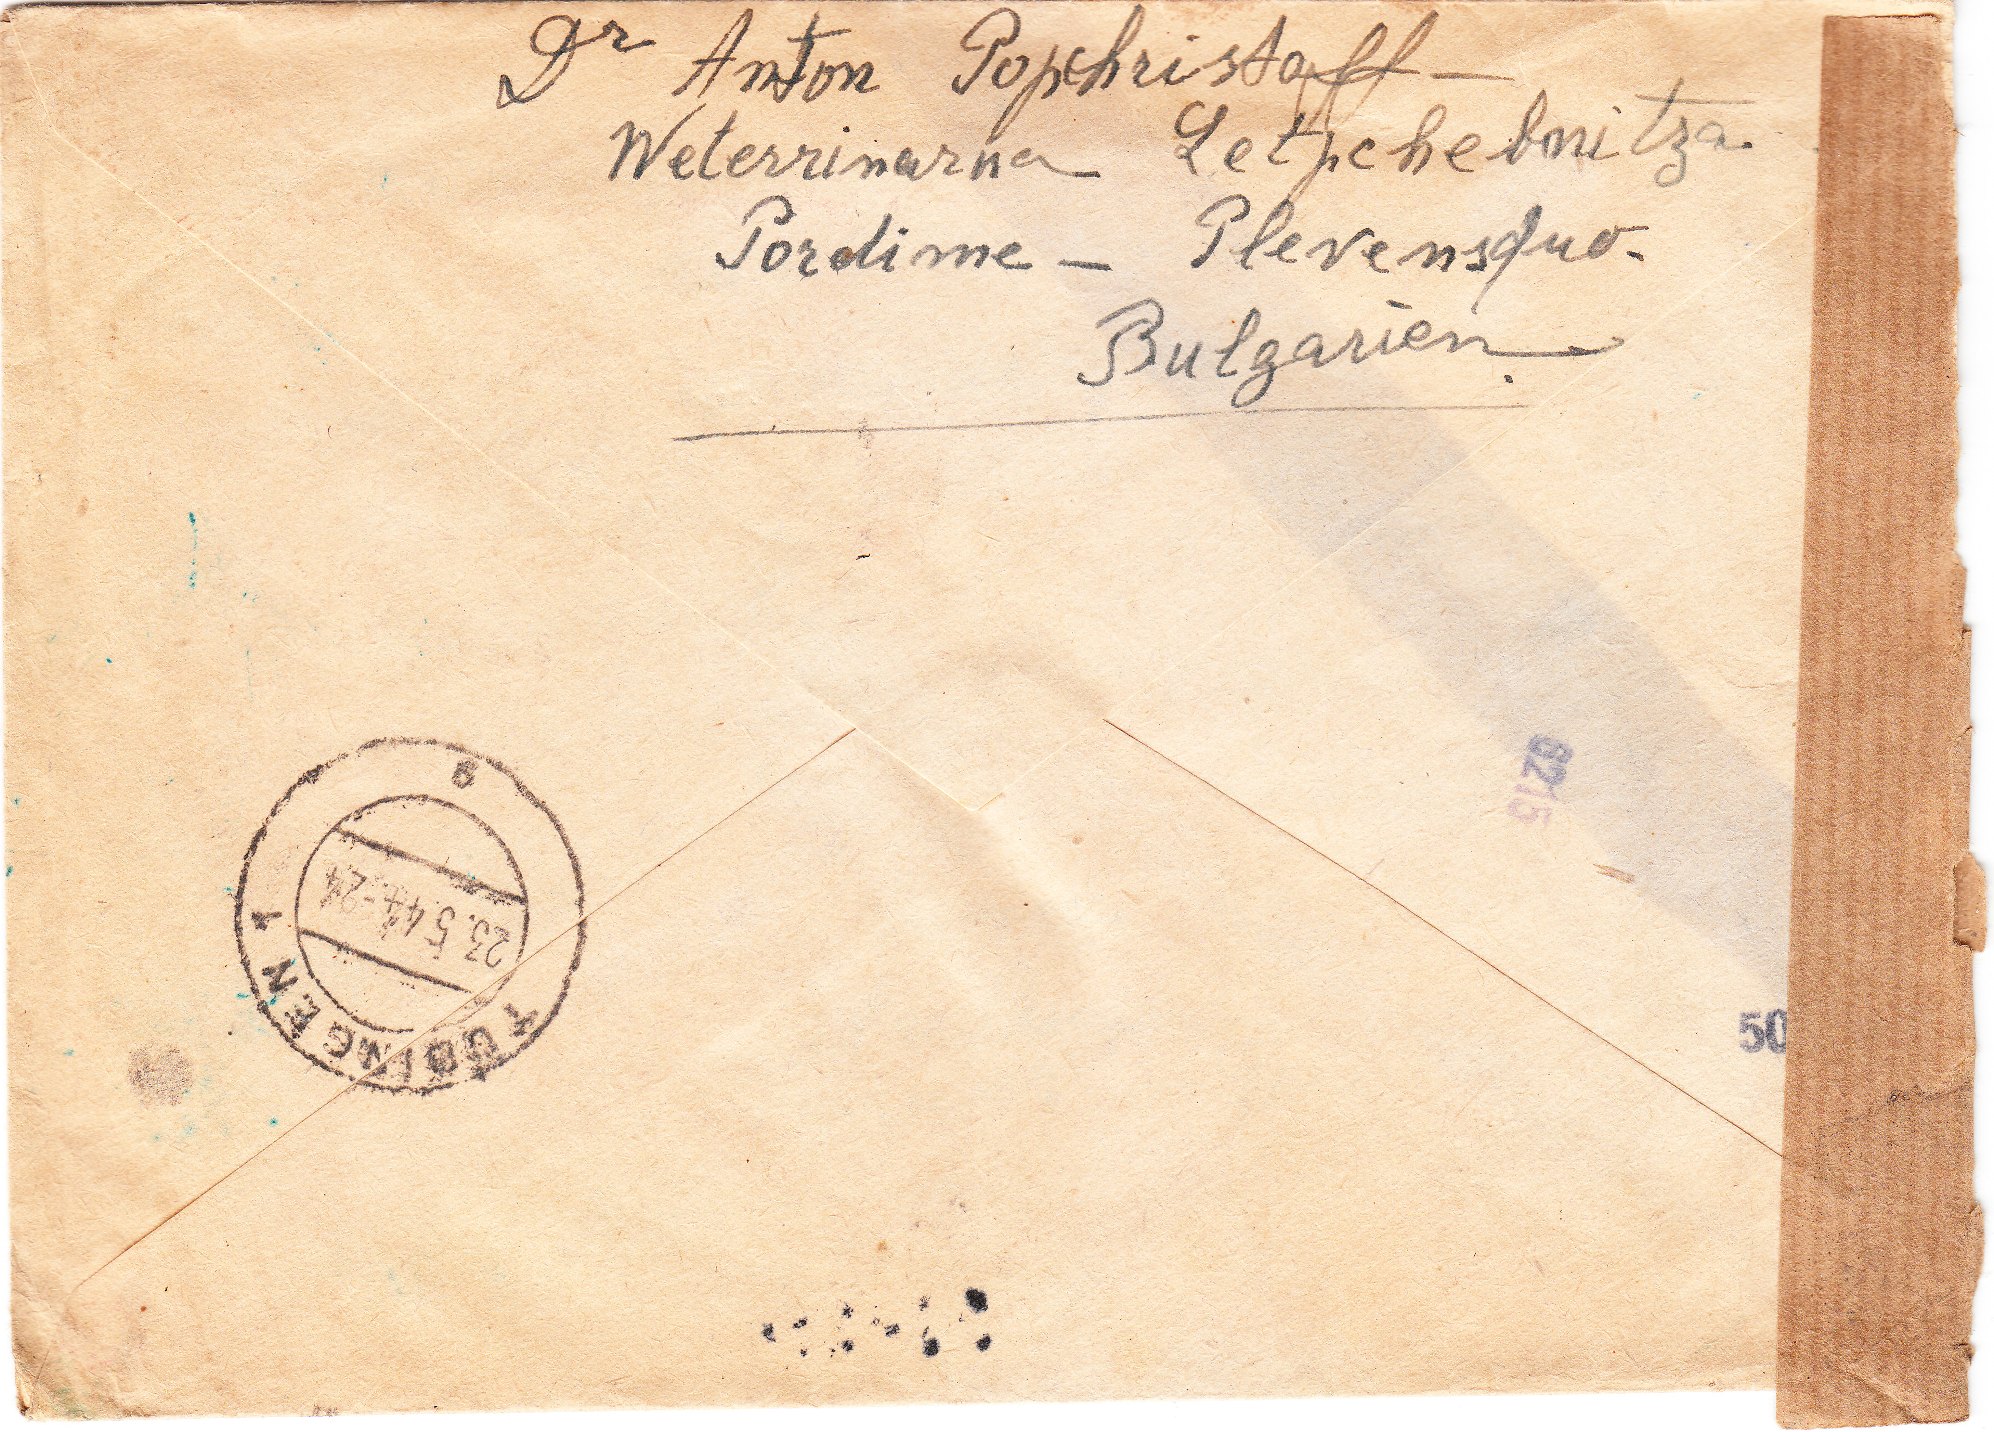 Dr Anton Popchristoff -
Weterrinarna Letpchebnitza.
Pordime - Plevensquo.
Bulgarien.
6215
50
TÜBINGEN 1
23.5.44.-24